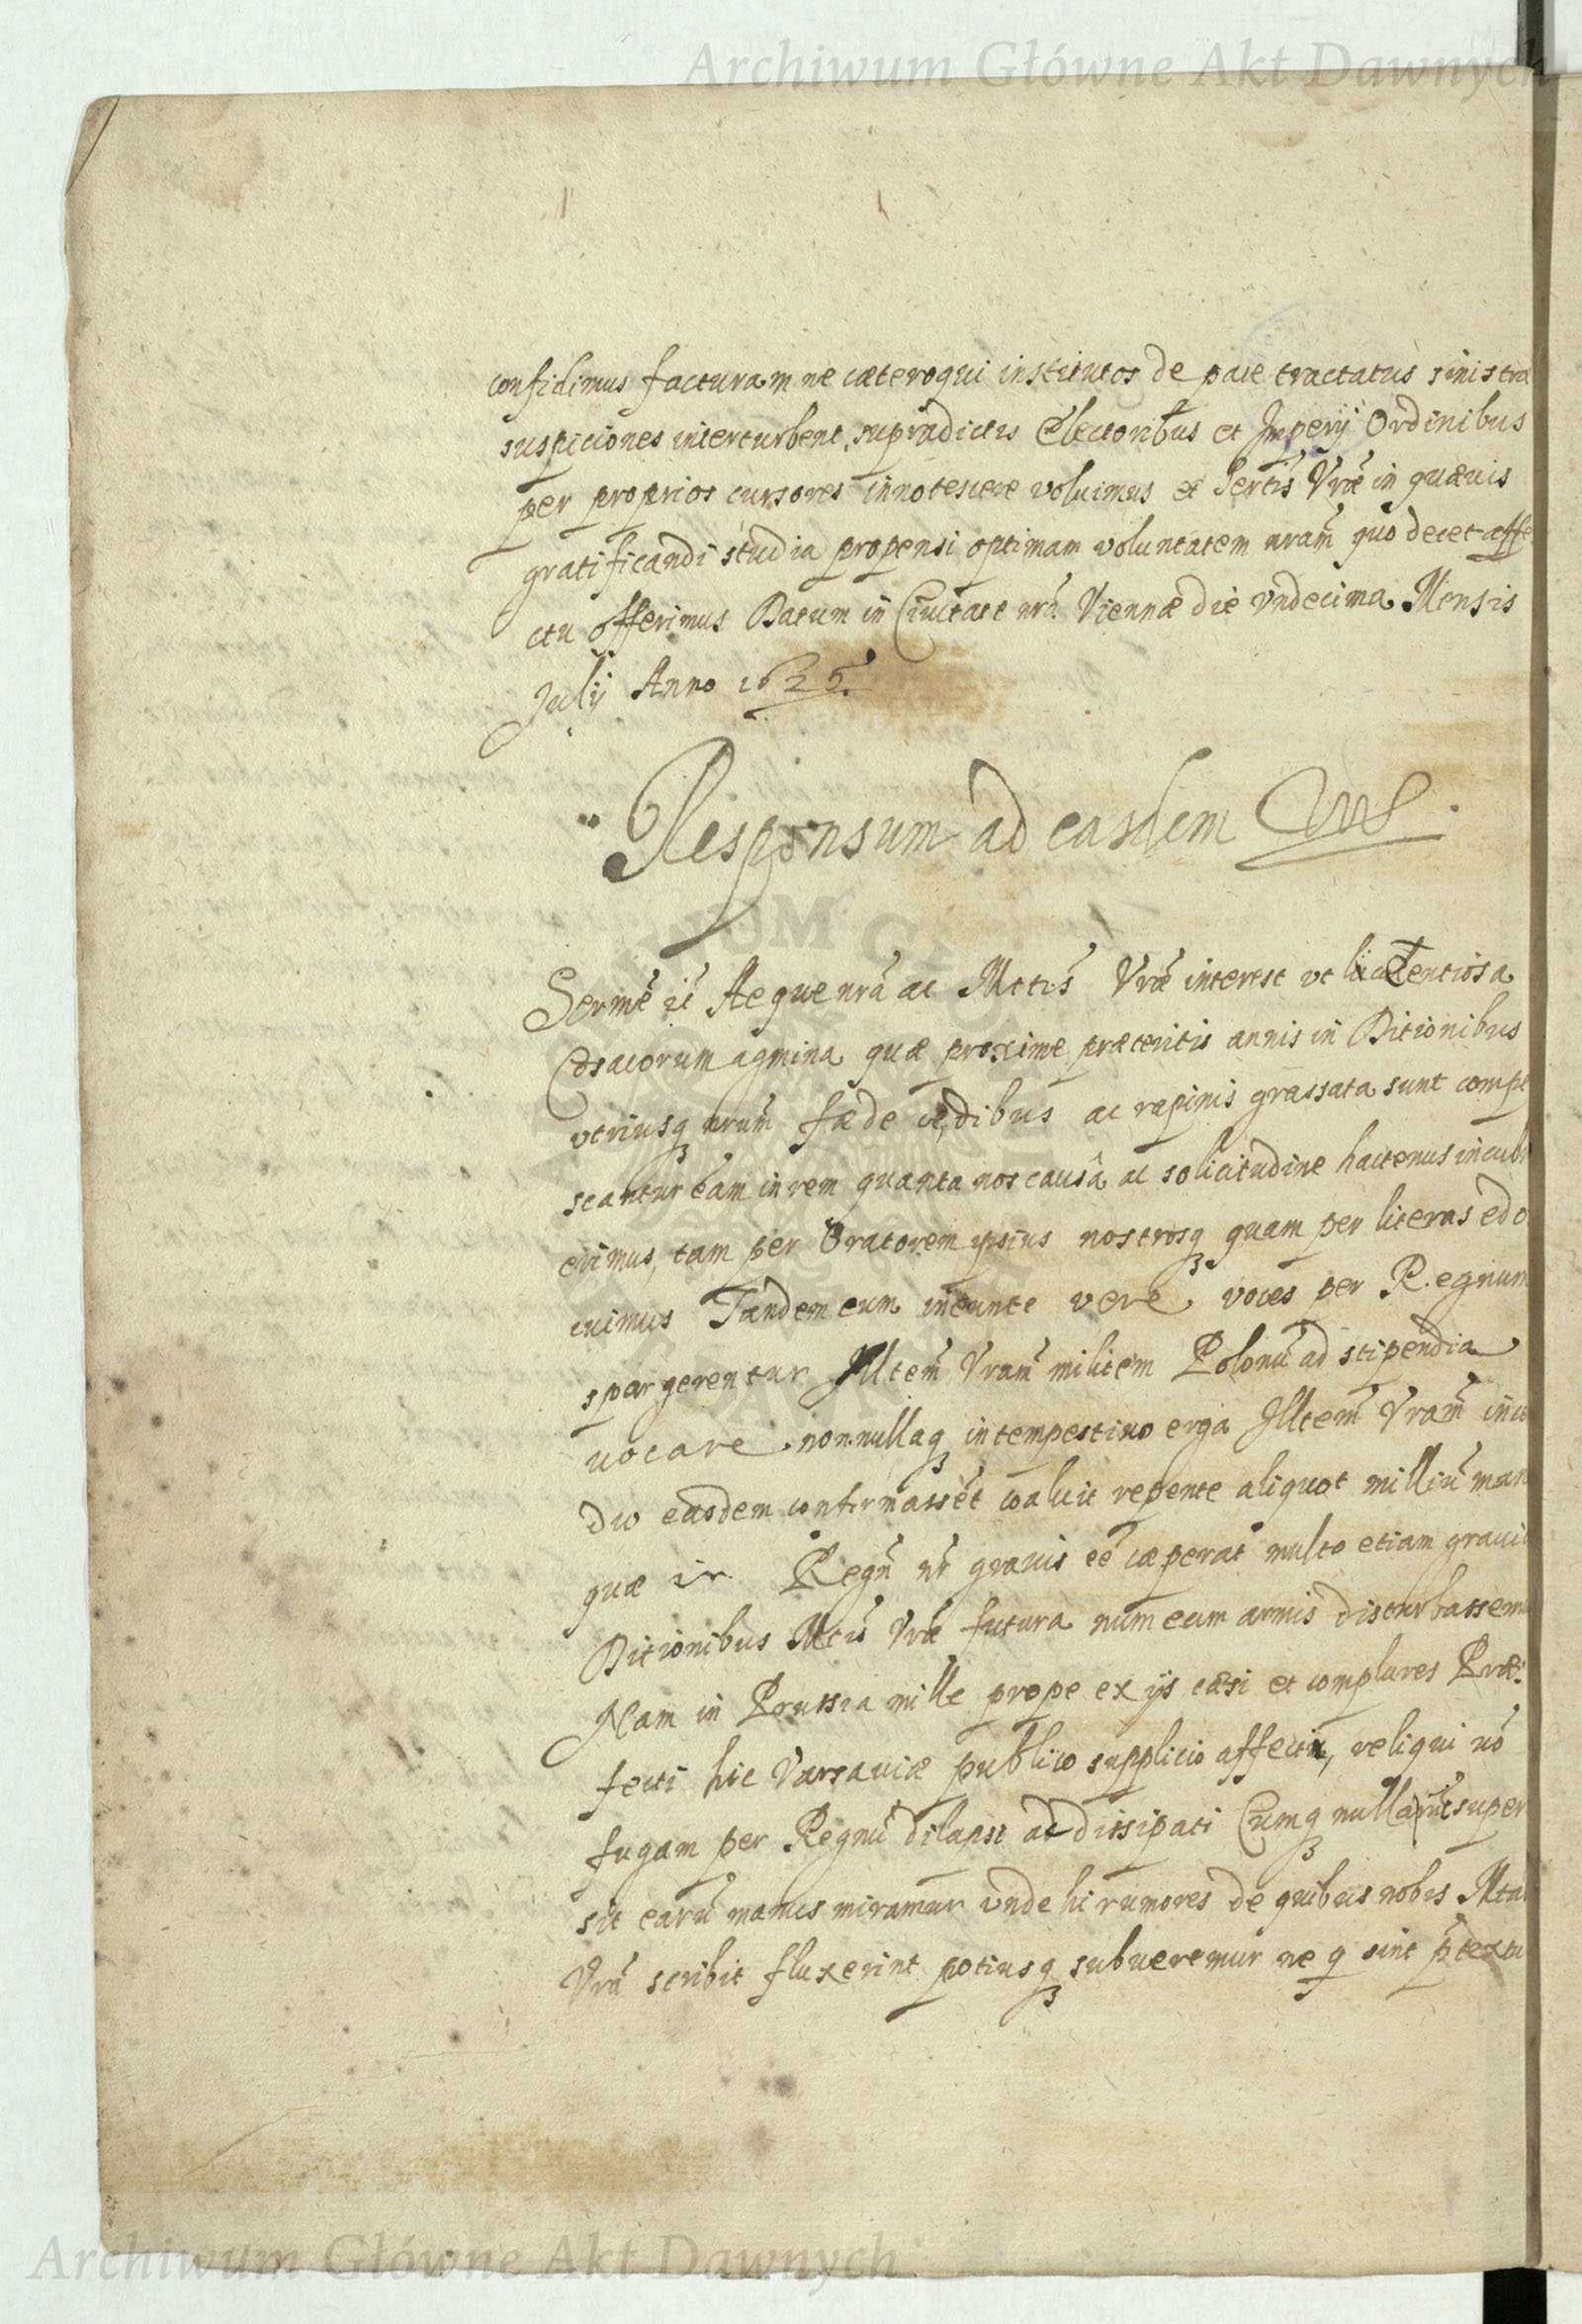 Archiwum Główne Akt Dawnych
confidimus facturam ne cæteroqui institutos de pace tractatus sinistræ
suspiciones interturbent, supradictis Electoribus et Imperij Ordinibus
per proprios cursores innotescere voluimus et Sertis Vræ in quævis
gratificandi studia propensi optimam voluntatem nram quo decet affe
ctu offerimus Datum in Ciuitate nra Viennæ die vndecima Mensis
Julij Anno 1625.
Responsum ad easdem
Serme Aeque nra ac Mttis Vræ interest vt licentiosa
Cosacorum agmina quæ proxime præteritis annis in Ditionibus
vtriusq nrum fæde cædibus ac rapinis grassata sunt compe
scantur eam in rem quanta nos causâ ac solicitudine hactenus incub
erimus, tam per Oratorem ipsius nostrosq quam per literas edo
cuimus Tandem cum ineunte vere voces per Regnum
spargerentur Mttem Vram militem Polonu ad stipendia
uocare nonnullaq intempestiuo erga Mttem Vram
dio easdem confirmasset coaluit repente aliquot milliu man
quæ Regn nr grauis ee cæperat multo etiam graui
Ditionibus Mttis Vræ futura num eum armis disturbassem
Nam in Prussia mille prope ex ijs cæsi et complures Præ
fecti hic Varsauiæ publico supplicio affecti, reliqui
fugam per Regnu dilapsi ac dissipati Cumq nulla super
sit earu manus miramur vnde hi rumores de quibus nobis Mtta
Vra scribit fluxerint potiusq subueremur ne q sint ptextu
Archiwum Główne Akt Dawnych